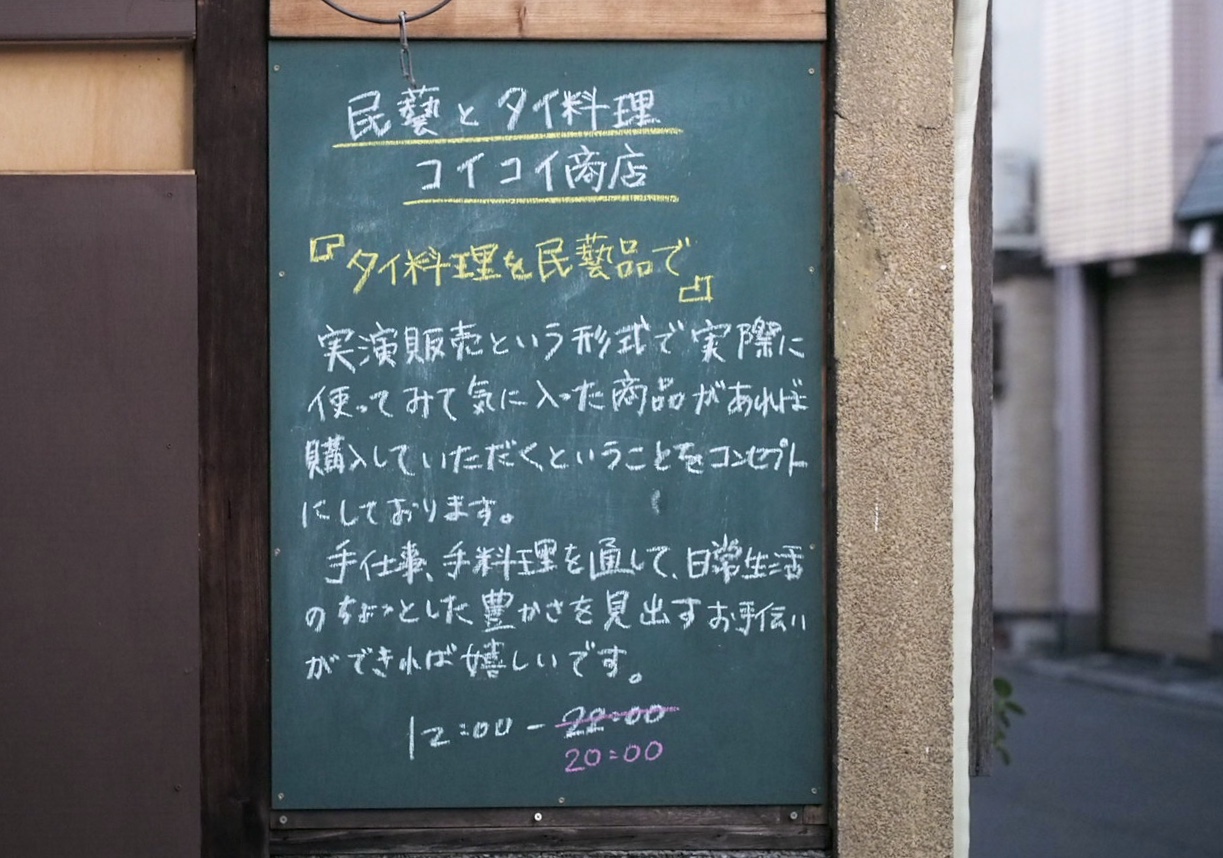 民藝とタイ料理
コイコイ商店
『タイ料理を民藝品で』
実演販売という形式で実際に
使ってみて気に入った商品があれば
購入していただくということをコンセプト
にしております。
手仕事、手料理を通して、日常生活
のちょっとした豊かさを見出すお手伝い
ができれば嬉しいです。
12:00-22:00
20:00